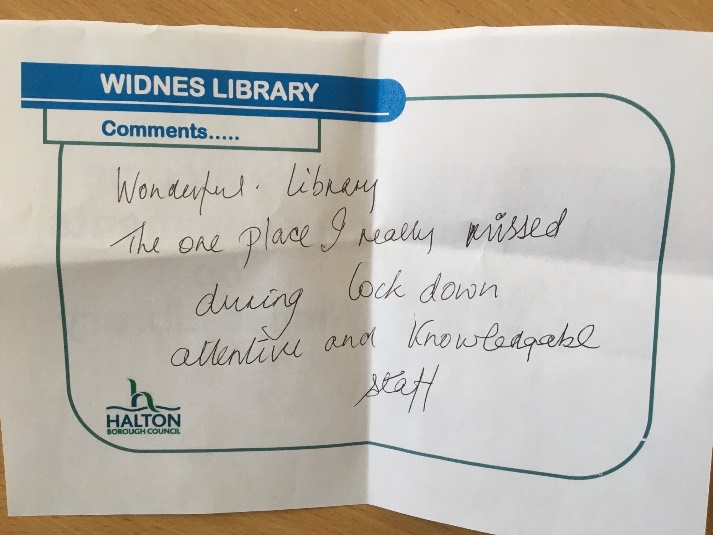 WIDNES LIBRARY
Comments.....
Wonderful. Library
The one place I really missed
during lock down
attentive and Knowledgable
staff
HALTON
BOROUGH COUNCIL